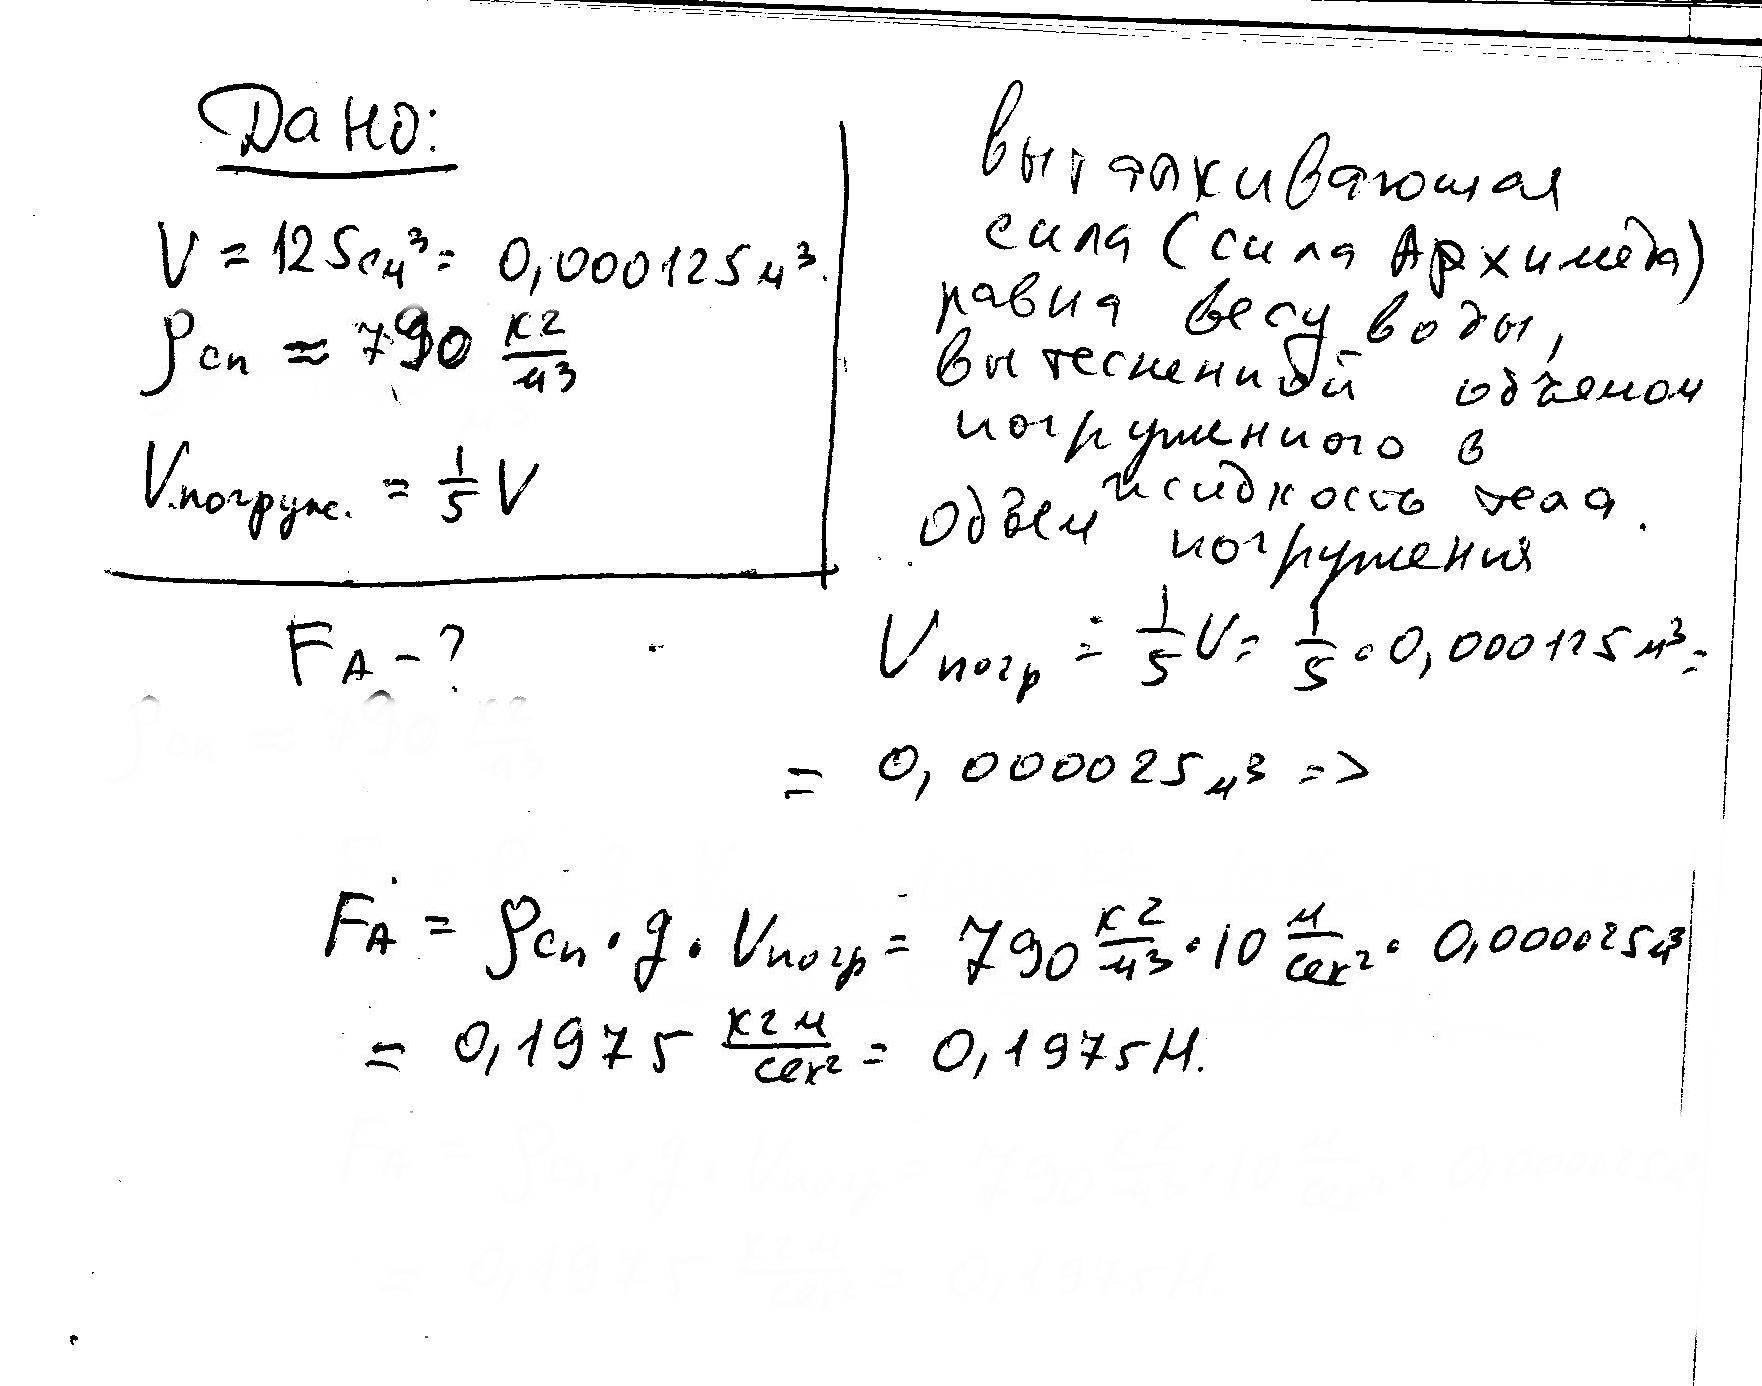 Дано:
V = 125см³ = 0,000125м³.
ρсп ≈ 790 кг/м³
Vпогруж. = 1/5 V
FА - ?
выталкивающая
сила (сила Архимеда)
равна весу воды,
вытесненной объемом
погруженного в
жидкость тела.
объем погружения
Vпогр = 1/5 V = 1/5 · 0,000125м³ =
= 0,000025м³ =>
FА = ρсп · g · Vпогр = 790 кг/м³ · 10 м/сек² · 0,000025м³
= 0,1975 кгм/сек² = 0,1975Н.